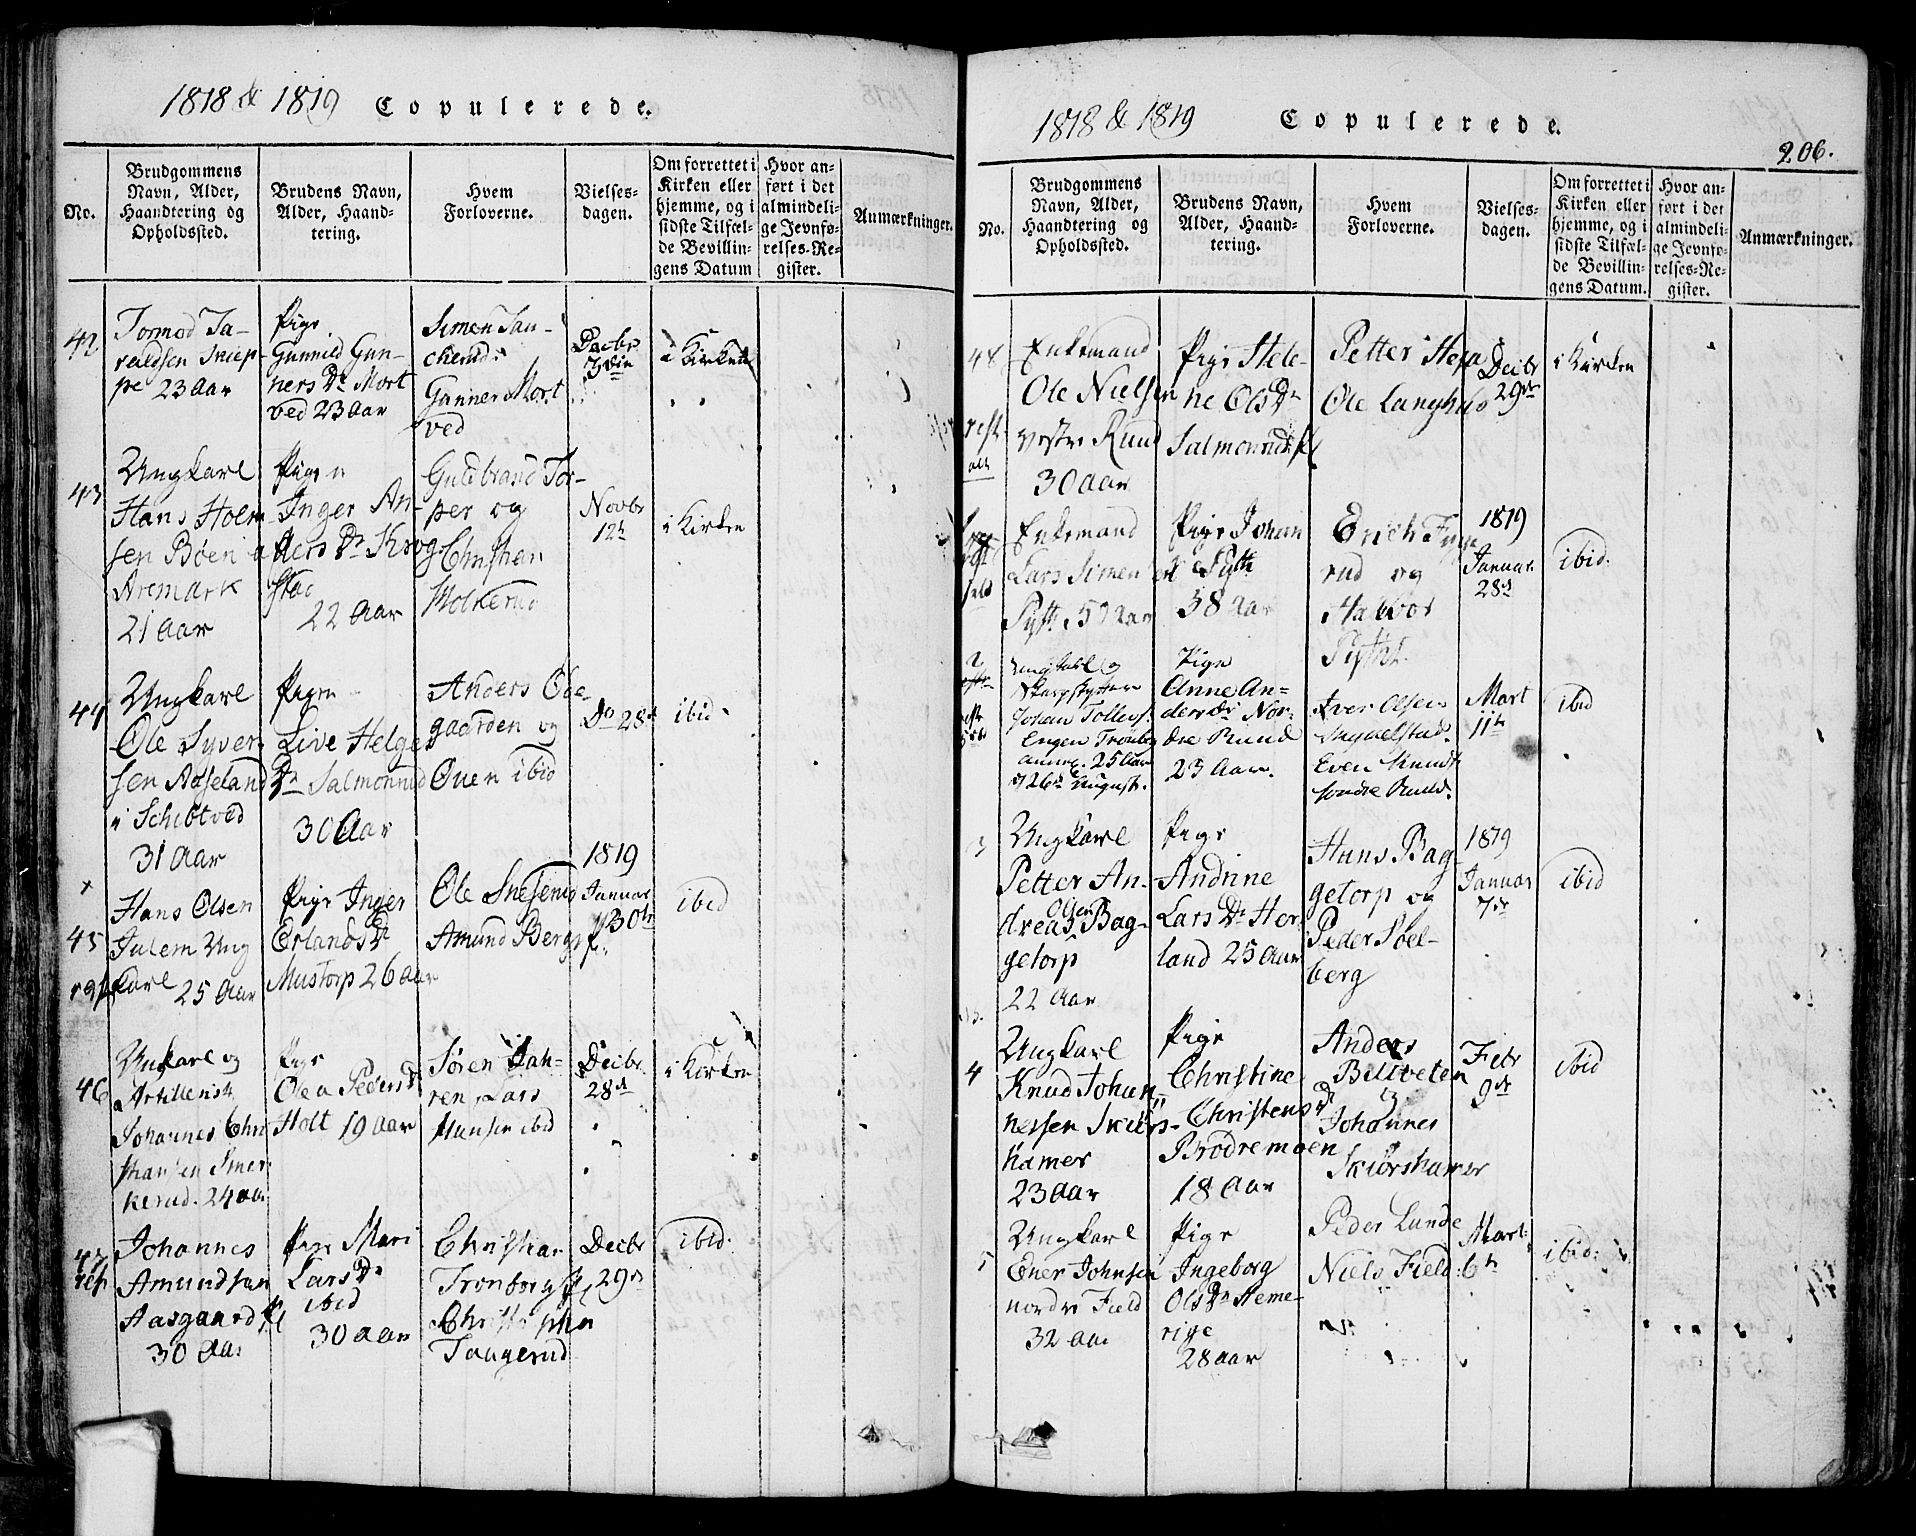 1818 & 1819 Copulerede.
No.
Brudgommens
Navn, Alder,
Haandtering og
Opholdssted.
Brudens Navn,
Alder, Haand-
tering.
Hvem
Forloverne.
Vielses-
dagen.
Om forrettet i
Kirken eller
hjemme, og i
sidste Tilfæl-
de Bevillin-
gens Datum
Hvor an-
ført i det
almindeli-
ge Jevnfø-
relses-Re-
gister.
Anmærkninger.
42
Tormod Ta-
raldsen
23 Aar
Pige
Gunnild Gun-
ners Dr Mort
ved 23 Aar
Simen
Gunner Mort
ved
i Kirken
43
Ungkarl
Hans Holm
sen Bøen
Aremark
21 Aar
Pigen
Inger An-
ders Dr Krog
stad
22 Aar
Guldbrand Tor-
per og
Christen
Novbr
12te
i Kirken
44
Ungkarl
Ole Syver-
sen Aaseland
i Schibtved
31 Aar
Pigen
Live Helges
Dr Salmonrud
30 Aar
Anders Øde-
gaarden og
Ouen ibid
Do 28de
ibid
45
Hans Olsen
Julem Ung
karl 25 Aar
Pige Inger
Erlands Dr
Mustorp 26 Aar
Ole
Amund Berger
1819
Januar
30te
ibid
46
Ungkarl og
Artillerist
Johannes Chri
stiansen
kerud. 24 Aar
Pige
Olea Peders Dr
Holt 19 Aar
Søren Jah-
ren, Lars
Hansen ibid
Decbr
28de
i Kirken
47
Johannes
Amundsen
Aasgaard
30 Aar
Pige Mari
Lars Dr
ibid
30 Aar
Christian
Tronborg
Christopher
Taagerud
Decbr
29de
ibid.
1818 & 1819 Copulerede.
206.
No.
Brudgommens
Navn, Alder,
Haandtering og
Opholdssted.
Brudens Navn,
Alder, Haand-
tering.
Hvem
Forloverne.
Vielses-
dagen.
Om forrettet i
Kirken eller
hjemme, og i
sidste Tilfæl-
de Bevillin-
gens Datum.
Hvor an-
ført i det
almindeli-
ge Jevnfø-
relses-Re-
gister.
Anmærkninger.
48
Enkemand
Ole Nielsen
vestre Ruud
30 Aar
Pige Hele-
ne Ols Dr
Salmonrud
Petter
Ole Langhus
Decbr
29de
i Kirken
Enkemand
Lars Simen
Pige Johan
38 Aar
Erich
rud og
Halvor
1819
Januar
28de
ibid.
2
Ungkarl og
Skarpskytter
Johan Tollefs.
Engen Tronborg
25 Aar
26de August.
Pige
Anne An-
ders Dr Nor-
dre Ruud
23 Aar.
Iver Olsen
Even
søndre Ruud.
Mart
11te
ibid
3
Ungkarl
Petter An-
dreas Olsen Bag-
getorp
22 Aar
Pige
Andrine
Lars Dr Hor
land 25 Aar
Hans Bag
getorp og
Peder Soel-
berg
1819
Januar
7de
ibid
4
Ungkarl
Knud Johan
nessen Skiørs-
hamer
23 Aar
Pige
Christine
Christens Dr
Brødremoen
18 Aar
Anders
og
Johannes
Skiørshamer
Febr
9de
ibid
5
Ungkarl
Ener Johnsen
nordre Field
32 Aar
Pige
Ingeborg
Ols Dr Heme-
rige
28 Aar
Peder Lunde
Niels Field
Mart:
6te
ibid: